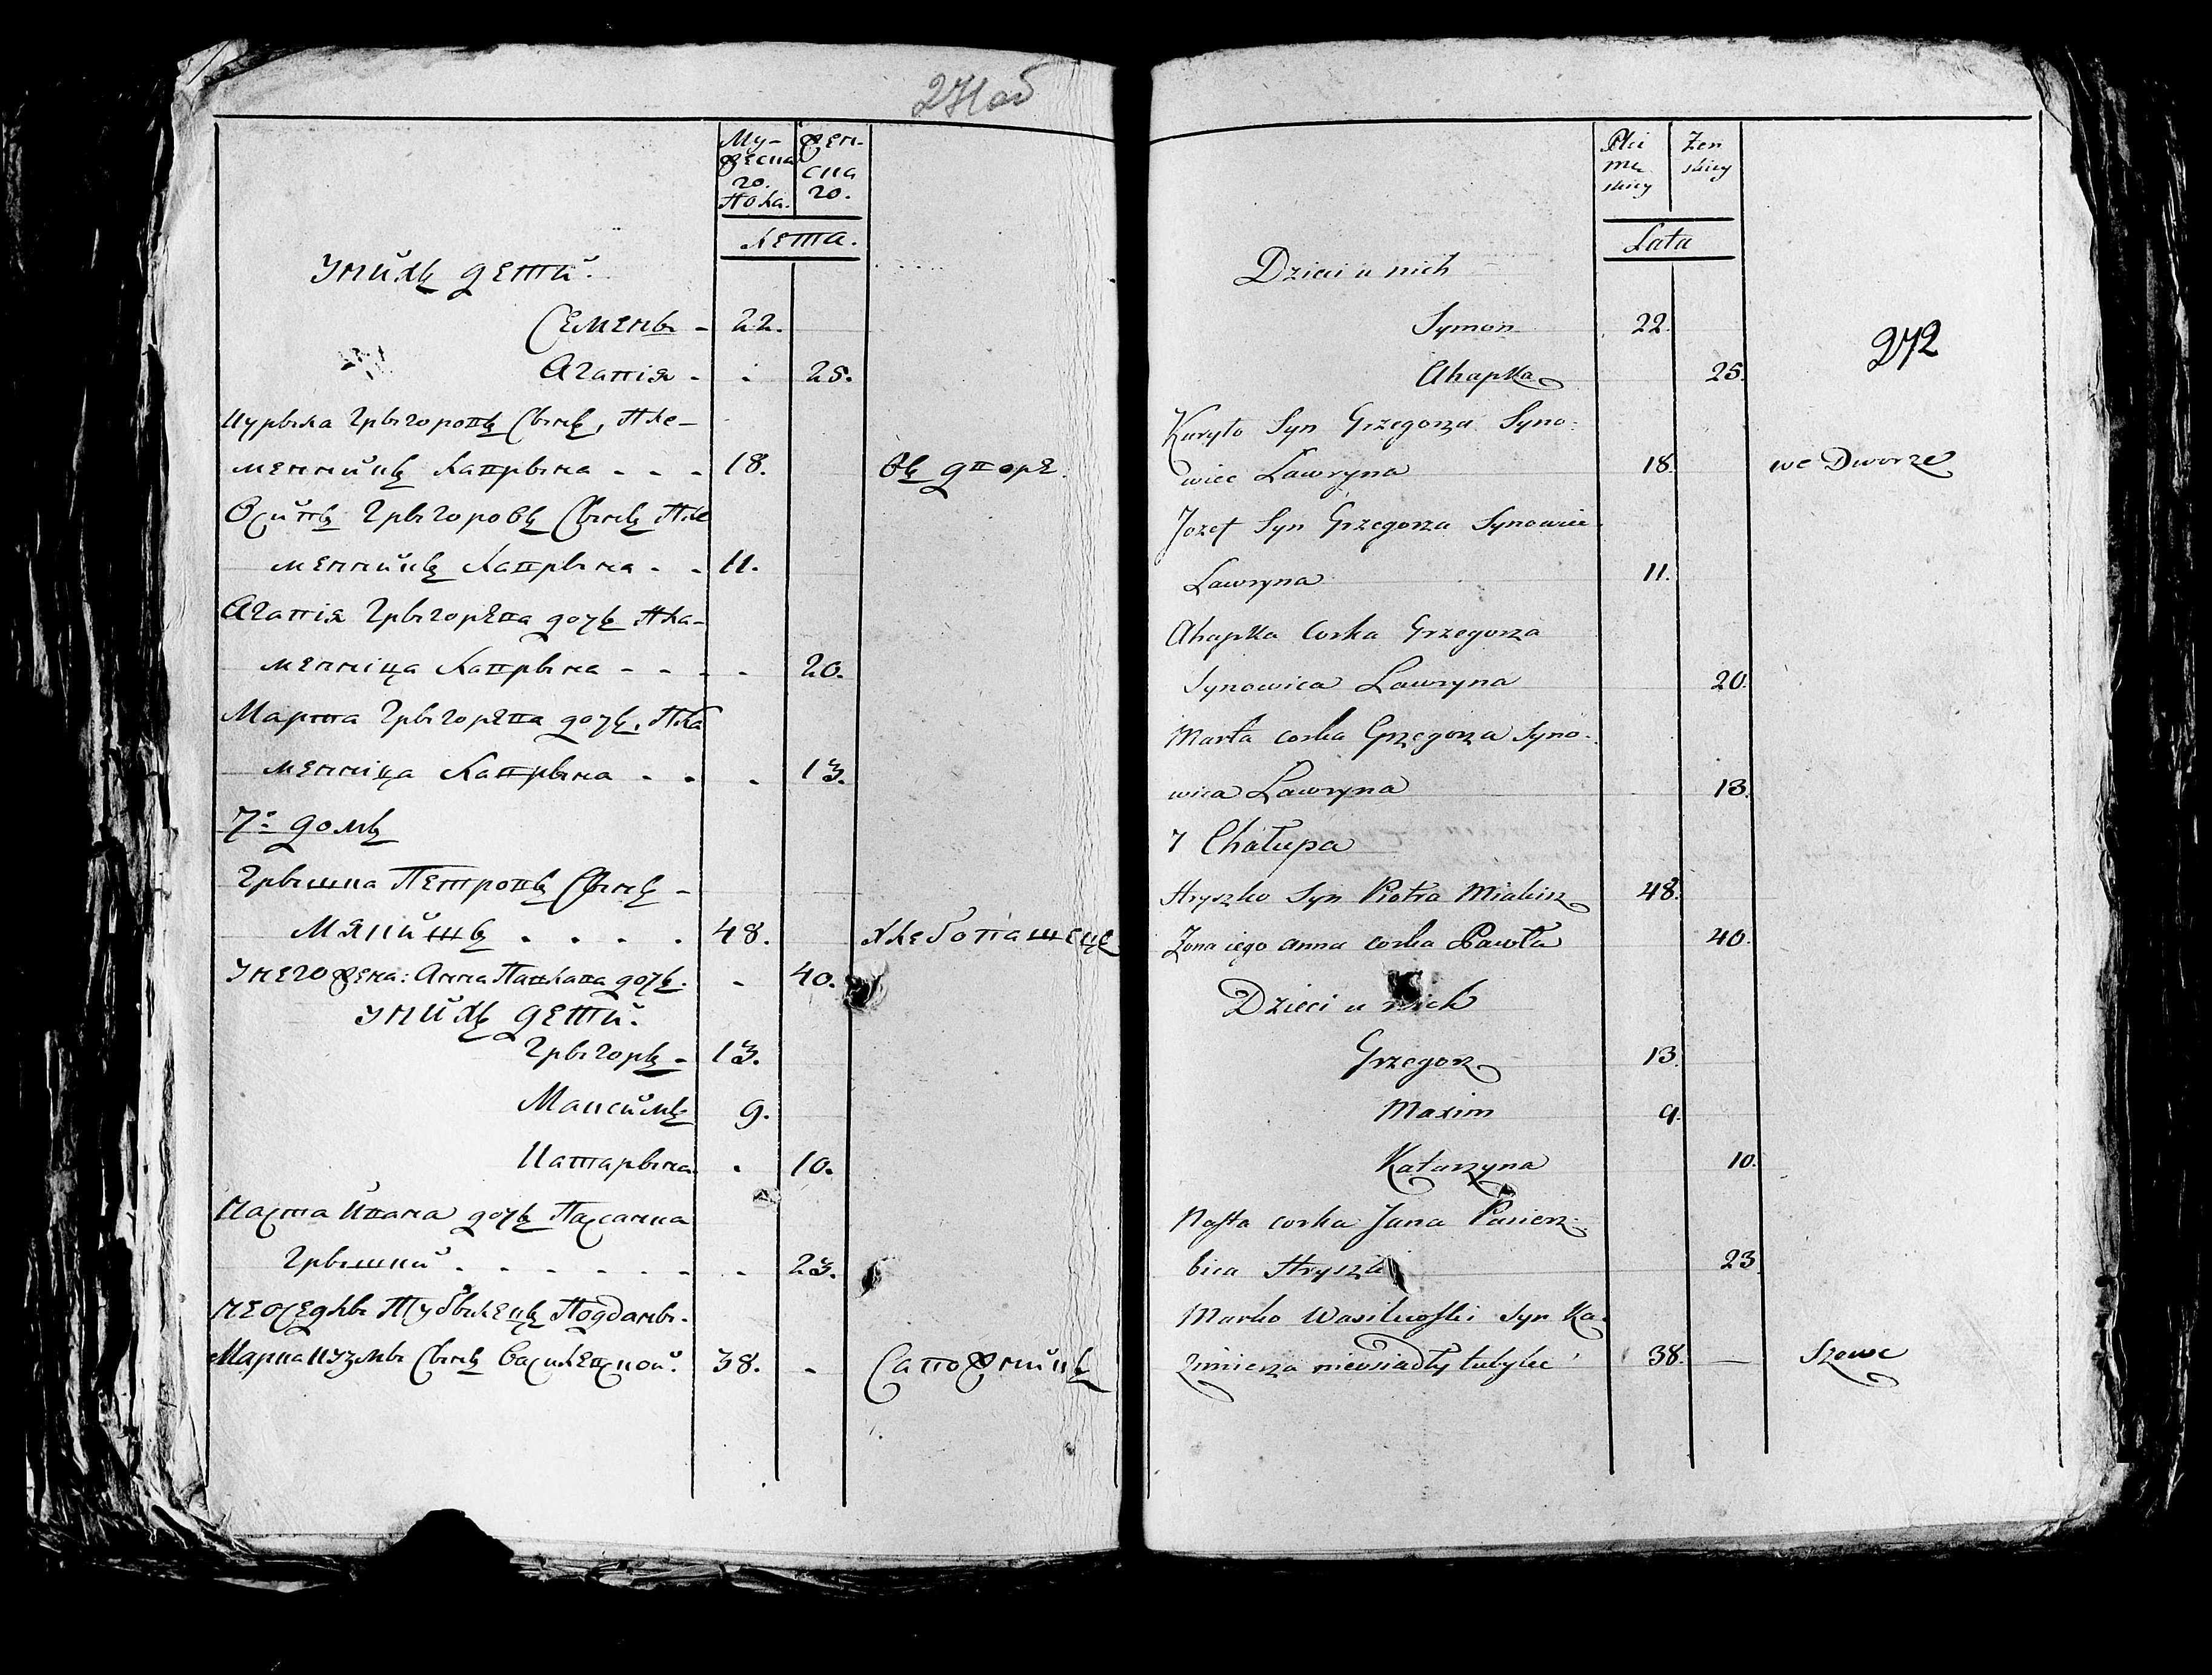 271об
Му-
жеска
го.
Пола.
Жен-
ска
го.
Лета.
У нихъ дети.
Семенъ - 22.
Агапія - - 25.
Курыла Грыгоровъ Сынъ, Пле-
менникъ Лаврына - - - 18. въ дворе.
Осипъ Грыгоровъ Сынъ Пле
менникъ Лаврына - - 11.
Агапія Грыгорева дочъ Пла-
менніца Лаврына - - - - 20.
Марта Грыгорева дочъ, Пла
менніца Лаврына - - - 13.
7й домъ
Грышка Петровъ Сынъ -
Мякишъ . . . . 48. хлебопашецъ
У него жена: Анна Павлава дочъ. - 40.
У нихъ дети.
Грыгоръ - 13.
Максимъ 9.
Катарына - 10.
Наста Ивана дочъ Пасанка
Грышки . - - - - - - 23.
неоседлы Тубылецъ Подданы.
Марка Кузмы Сынъ Василевской. 38. - Сапожникъ
Płci
mę
skiey
Żen
skiey
Lata
Dzieci u nich
Symon 22.
Ahapka 25.
272
Kuryło Syn Grzegorza Syno-
wiec Lawryna 18. we Dworze
Jozef Syn Grzegorza Synowiec
Lawryna 11.
Ahapka Corka Grzegorza
Synowica Lawryna 20.
Marta corka Grzegorza Syno-
wica Lawryna 13.
7 Chałupa
Hryszko Syn Piotra Miakisz 48.
Żona iego Anna corka Pawła 40.
Dzieci u nich
Grzegorz 13.
Maxim 9.
Katarzyna 10.
Nasta corka Jana Pasierz-
bica Hryszki 23.
Marko Wasilewski Syn Ka-
zimierza nieosiadły tubylec 38. - Szewc